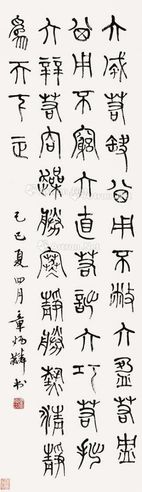 大成若缺其用不敝大盈若盅
其用不窮大直若詘大巧若拙
大辯若訥躁勝寒靜勝熱清靜
為天下正
己巳夏四月章炳麟書